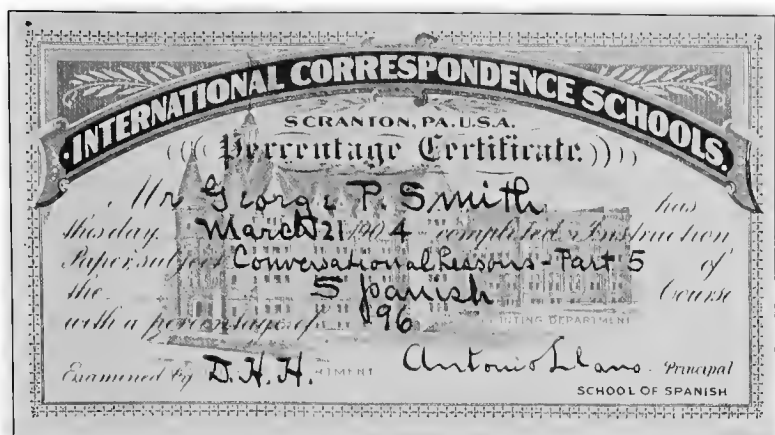 INTERNATIONAL CORRESPONDENCE SCHOOLS.
SCRANTON, PA. U.S.A.
Percentage Certificate.
Mr George P. Smith has
this day March 21 1904 completed Instruction
Paper, subject Conversational Lessons - Part 5 of
the Spanish Course
with a percentage of 96
PRINTING DEPARTMENT
Examined by D.H.H. Antonio Llano Principal
SCHOOL OF SPANISH